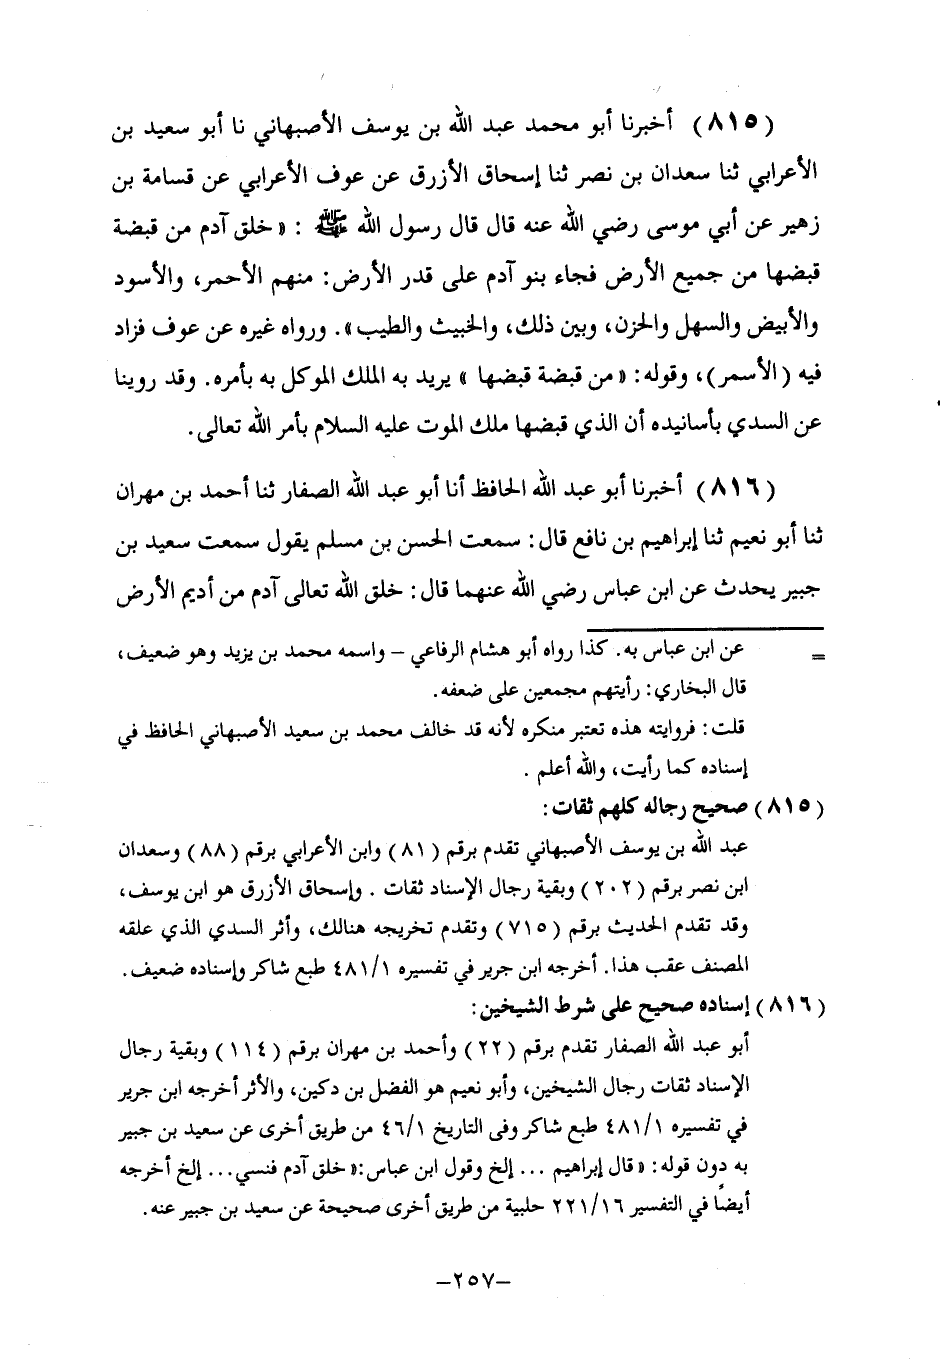 (٨١٥) أخبرنا أبو محمد عبد الله بن يوسف الأصبهاني نا أبو سعيد بن
الأعرابي ثنا سعدان بن نصر ثنا إسحاق الأزرق عن عوف الأعرابي عن قسامة بن
زهير عن أبي موسى رضي الله عنه قال قال رسول الله ﷺ : «خلق آدم من قبضة
قبضها من جميع الأرض فجاء بنو آدم على قدر الأرض: منهم الأحمر، والأسود
والأبيض والسهل والحزن، وبين ذلك، والخبيث والطيب». ورواه غيره عن عوف فزاد
فيه (الأسمر)، وقوله: «من قبضة قبضها» يريد به الملك الموكل به بأمره. وقد روينا
عن السدي بأسانيده أن الذي قبضها ملك الموت عليه السلام بأمر الله تعالى.
(٨١٦) أخبرنا أبو عبد الله الحافظ أنا أبو عبد الله الصفار ثنا أحمد بن مهران
ثنا أبو نعيم ثنا إبراهيم بن نافع قال: سمعت الحسن بن مسلم يقول سمعت سعيد بن
جبير يحدث عن ابن عباس رضي الله عنهما قال: خلق الله تعالى آدم من أديم الأرض
= عن ابن عباس به. كذا رواه أبو هشام الرفاعي – واسمه محمد بن يزيد وهو ضعيف،
قال البخاري: رأيتهم مجمعين على ضعفه.
قلت: فروايته هذه تعتبر منكره لأنه قد خالف محمد بن سعيد الأصبهاني الحافظ في
إسناده كما رأيت، والله أعلم .
(٨١٥) صحيح رجاله كلهم ثقات:
عبد الله بن يوسف الأصبهاني تقدم برقم (٨١) وابن الأعرابي برقم (٨٨) وسعدان
ابن نصر برقم (٢٠٢) وبقية رجال الإسناد ثقات . وإسحاق الأزرق هو ابن يوسف،
وقد تقدم الحديث برقم (٧١٥) وتقدم تخريجه هنالك، وأثر السدي الذي علقه
المصنف عقب هذا. أخرجه ابن جرير في تفسيره ٤٨١/١ طبع شاكر وإسناده ضعيف.
(٨١٦) إسناده صحيح على شرط الشيخين:
أبو عبد الله الصفار تقدم برقم (٢٢) وأحمد بن مهران برقم (١١٤) وبقية رجال
الإسناد ثقات رجال الشيخين، وأبو نعيم هو الفضل بن دكين، والأثر أخرجه ابن جرير
في تفسيره ٤٨١/١ طبع شاكر وفى التاريخ ٤٦/١ من طريق أخرى عن سعيد بن جبير
به دون قوله: «قال إبراهيم ... إلخ وقول ابن عباس:«خلق آدم فنسي... إلخ أخرجه
أيضاً في التفسير ٢٢١/١٦ حلبية من طريق أخرى صحيحة عن سعيد بن جبير عنه.
–٢٥٧–